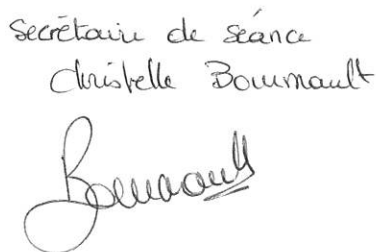 Secrétaire de séance
Christelle Bournault